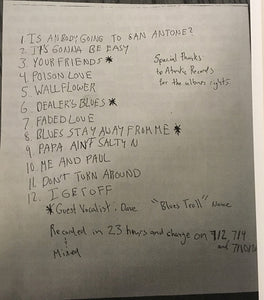 1. IS ANBODY GOING TO SAN ANTONE?
2. IT'S GONNA BE EASY
3 YOUR FRIENDS *
4 POISON LOVE
5 WALLFLOWER
6 DEALER'S BLUES *
7 FADED LOVE
8 BLUES STAY AWAY FROM ME *
9 PAPA AIN'T SALTY N
10. ME AND PAUL
11. DON'T TURN AROUND
12. I GET OFF
Special thanks
to Atlantic Records
for the rights.
* Guest Vocalist: Dave "Blues Troll" Nance
Recorded in 23 hours and change on 7/2 7/9
Mixed
and